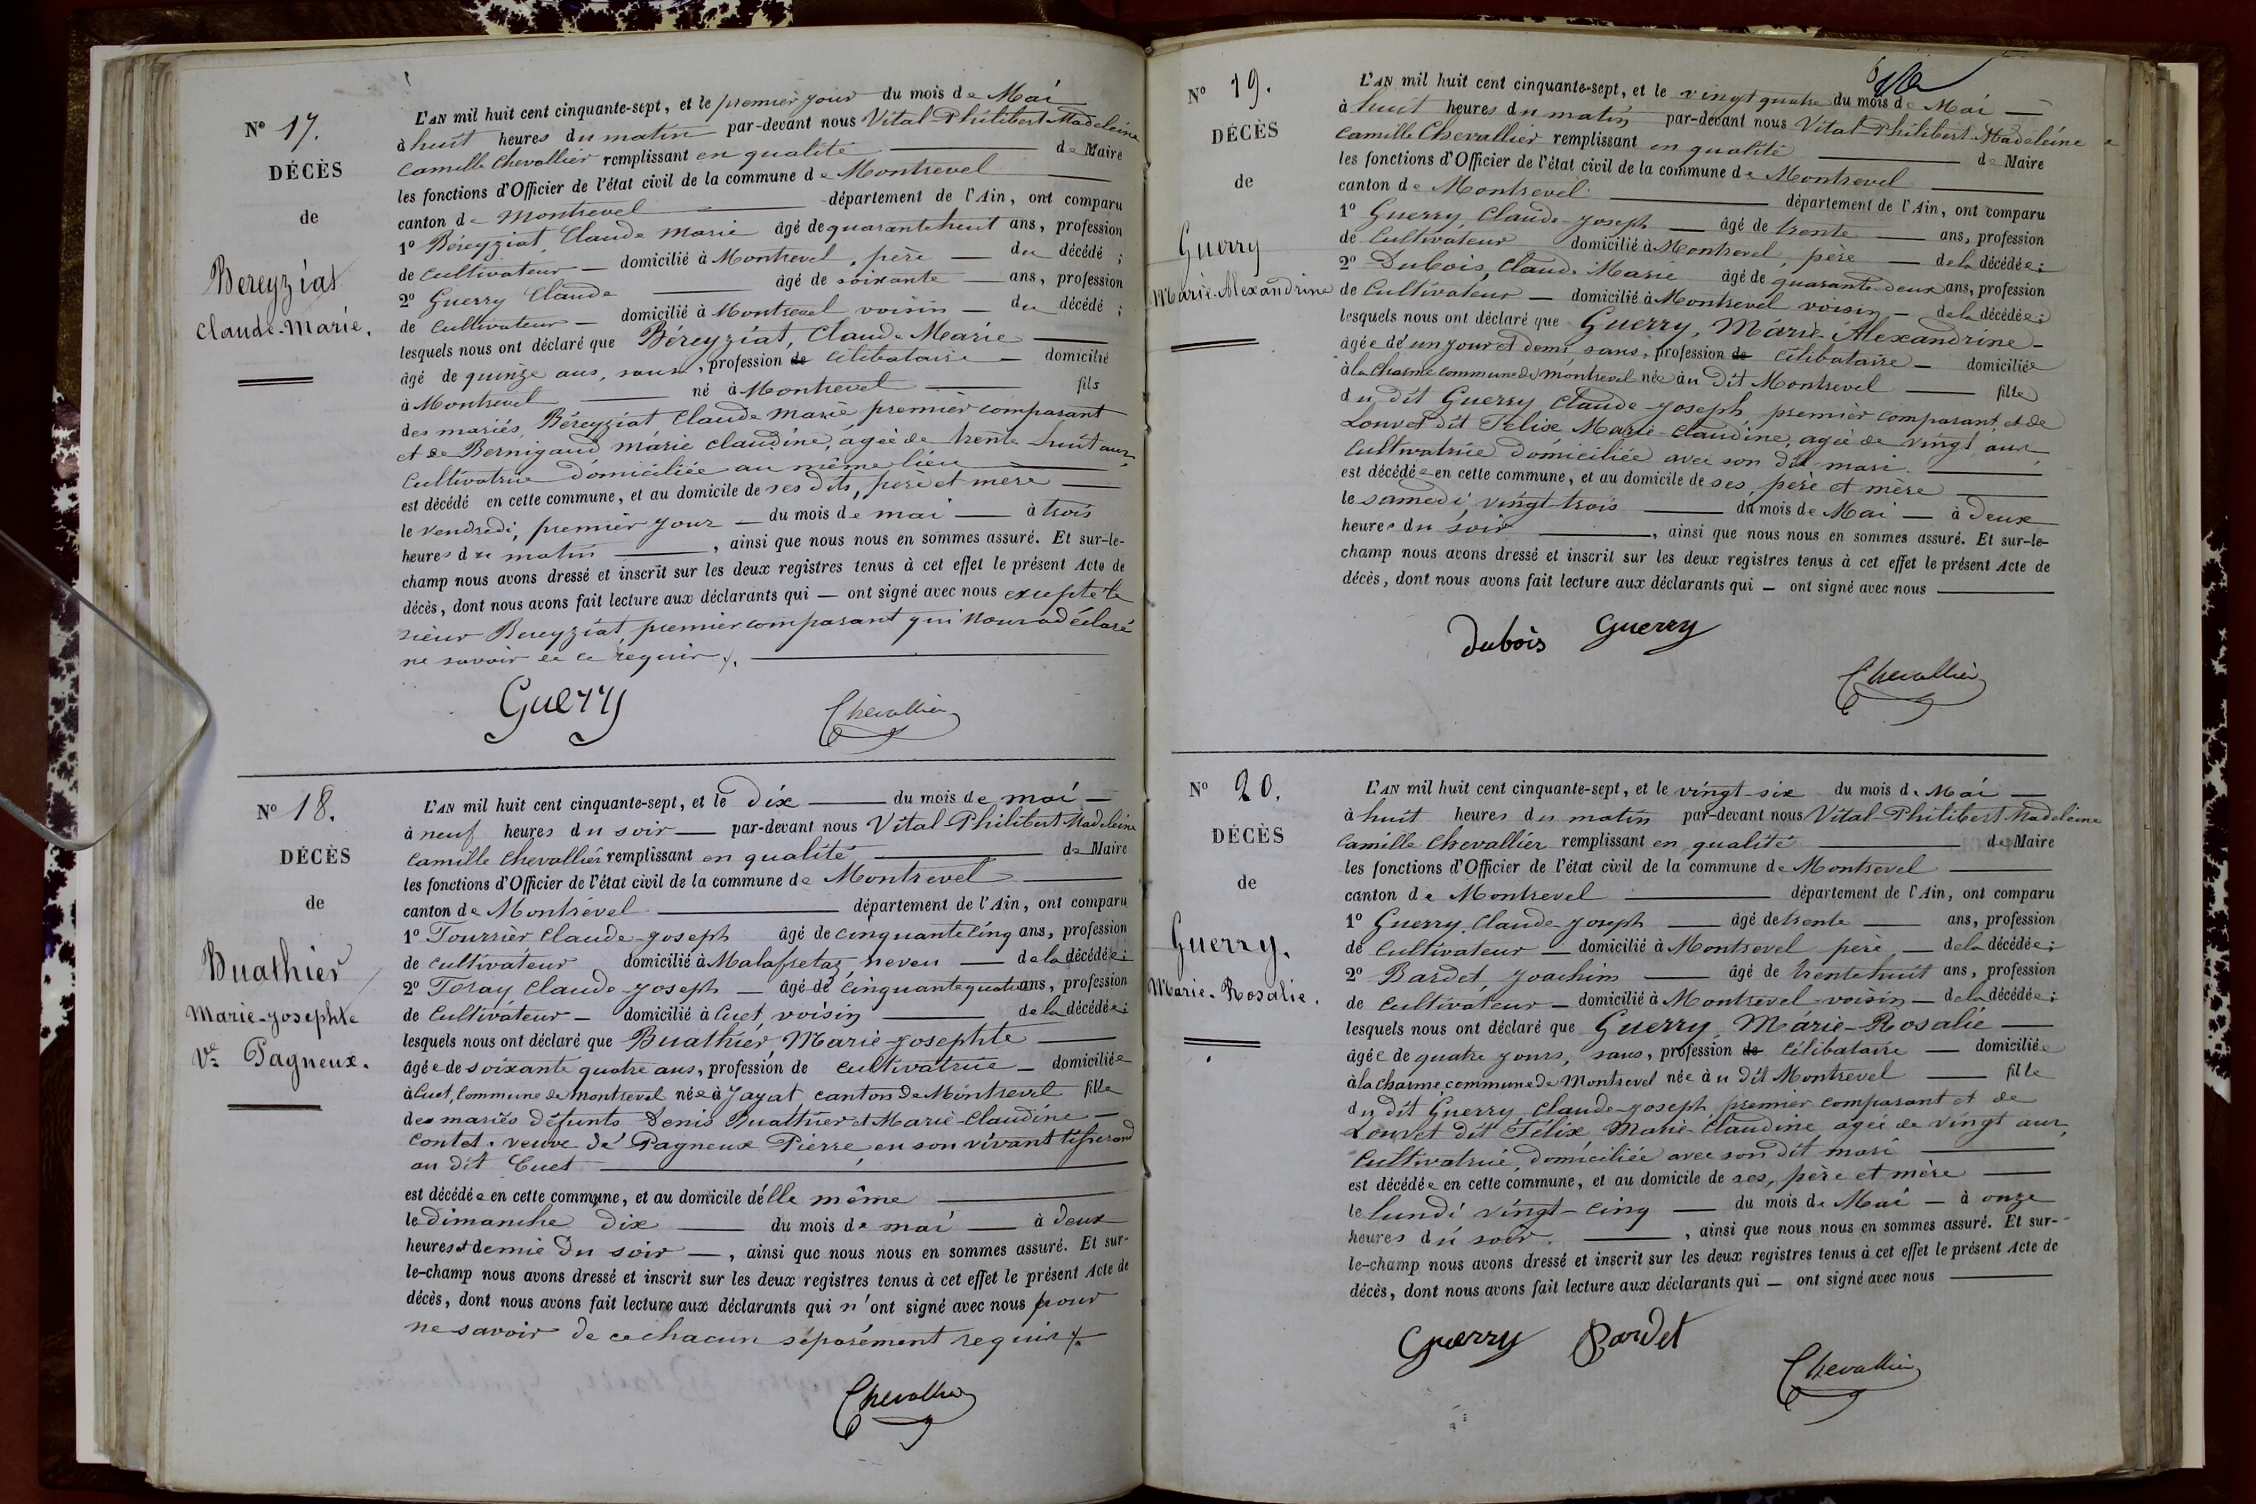 N° 17.
DÉCÈS
de
Bereyziat
Claude-Marie.
L'AN mil huit cent cinquante-sept, et le premier jour du mois de Mai
à huit heures du matin par-devant nous Vital-Philibert Madeleine
Camille Chevallier remplissant en qualité de Maire
les fonctions d'Officier de l'état civil de la commune de Montrevel
canton de Montrevel département de l'Ain, ont comparu
1° Béreyziat, Claude Marie âgé de quarante huit ans, profession
de cultivateur domicilié à Montrevel, père du décédé ;
2° Guerry Claude âgé de soixante ans, profession
de cultivateur domicilié à Montrevel voisin du décédé ;
lesquels nous ont déclaré que Béreyziat, Claude Marie
âgé de quinze ans, sans, profession de célibataire domicilié
à Montrevel né à Montrevel fils
des mariés Béreyziat Claude Marie premier comparant
et de Bernigaud Marie Claudine, agée de trente huit ans,
Cultivatrice domiciliée au même lieu
est décédé en cette commune, et au domicile de ses dits, père et mère
le vendredi, premier jour du mois de mai à trois
heures du matin, ainsi que nous nous en sommes assuré. Et sur-le-
champ nous avons dressé et inscrit sur les deux registres tenus à cet effet le présent Acte de
décès, dont nous avons fait lecture aux déclarants qui ont signé avec nous excepté le
sieur Bereyziat, premier comparant qui nous a déclaré
ne savoir de ce requis.
Guerry
Chevallier
N° 18.
DÉCÈS
de
Buathier
Marie-Josephte
Ve Pagneux.
L'AN mil huit cent cinquante-sept, et le dix du mois de mai
à neuf heures du soir par-devant nous Vital-Philibert Madeleine
Camille Chevallier remplissant en qualité de Maire
les fonctions d'Officier de l'état civil de la commune de Montrevel
canton de Montrevel département de l'Ain, ont comparu
1° Tourrier Claude-Joseph âgé de cinquante cinq ans, profession
de cultivateur domicilié à Malafretaz, neveu de la décédée ;
2° Toray Claude-Joseph âgé de cinquante quatre ans, profession
de Cultivateur domicilié à Cuet, voisin de la décédée ;
lesquels nous ont déclaré que Buathier, Marie-Josephte
âgée de soixante quatre ans, profession de cultivatrice domiciliée
à Cuet, Commune de Montrevel née à Jayat canton de Montrevel fille
des mariés défunts Denis Buathier et Marie-Claudine
Contet. veuve de Pagneux Pierre, en son vivant tisserand
au dit Cuet
est décédée en cette commune, et au domicile d'elle même
le Dimanche dix du mois de mai à deux
heures et demie du soir, ainsi que nous nous en sommes assuré. Et sur-
le-champ nous avons dressé et inscrit sur les deux registres tenus à cet effet le présent Acte de
décès, dont nous avons fait lecture aux déclarants qui n'ont signé avec nous pour
ne savoir de ce chacun séparément requis.
Chevallier
N° 19.
DÉCÈS
de
Guerry
Marie-Alexandrine
L'AN mil huit cent cinquante-sept, et le vingt quatre du mois de Mai
à huit heures du matin par-devant nous Vital-Philibert-Madeleine
Camille Chevallier remplissant en qualité de Maire
les fonctions d'Officier de l'état civil de la commune de Montrevel
canton de Montrevel département de l'Ain, ont comparu
1° Guerry Claude-Joseph âgé de trente ans, profession
de Cultivateur domicilié à Montrevel, père de la décédée ;
2° Dubois, Claude Marie âgé de quarante-deux ans, profession
de Cultivateur domicilié à Montrevel voisin de la décédée ;
lesquels nous ont déclaré que Guerry, Marie-Alexandrine
âgée de un jour et demi, sans, profession de célibataire domiciliée
à la Charme commune de Montrevel née au dit Montrevel fille
du dit Guerry Claude-Joseph, premier comparant, et de
Louvet dit Félix Marie-Claudine, agée de vingt ans,
Cultivatrice domiciliée avec son dit mari.
est décédée en cette commune, et au domicile de ses, père et mère
le samedi, vingt-trois du mois de Mai à deux
heures du soir, ainsi que nous nous en sommes assuré. Et sur-le-
champ nous avons dressé et inscrit sur les deux registres tenus à cet effet le présent Acte de
décès, dont nous avons fait lecture aux déclarants qui ont signé avec nous
Dubois Guerry
Chevallier
N° 20.
DÉCÈS
de
Guerry.
Marie-Rosalie.
L'AN mil huit cent cinquante-sept, et le vingt-six du mois de Mai
à huit heures du matin par-devant nous Vital-Philibert Madeleine
Camille Chevallier remplissant en qualité de Maire
les fonctions d'Officier de l'état civil de la commune de Montrevel
canton de Montrevel département de l'Ain, ont comparu
1° Guerry, Claude-Joseph âgé de trente ans, profession
de Cultivateur domicilié à Montrevel père de la décédée ;
2° Bardet Joachim âgé de trente huit ans, profession
de Cultivateur domicilié à Montrevel voisin de la décédée ;
lesquels nous ont déclaré que Guerry Marie-Rosalie
âgée de quatre jours, sans, profession de célibataire domiciliée
à la charme commune de Montrevel née au dit Montrevel fille
du dit Guerry Claude-Joseph, premier comparant et de
Louvet dit Félix Marie-Claudine agée de vingt ans,
Cultivatrice, domiciliée avec son dit mari
est décédée en cette commune, et au domicile de ses, père et mère
le lundi vingt-cinq du mois de Mai à onze
heures du soir, ainsi que nous nous en sommes assuré. Et sur-
le-champ nous avons dressé et inscrit sur les deux registres tenus à cet effet le présent Acte de
décès, dont nous avons fait lecture aux déclarants qui ont signé avec nous
Guerry Bardet
Chevallier